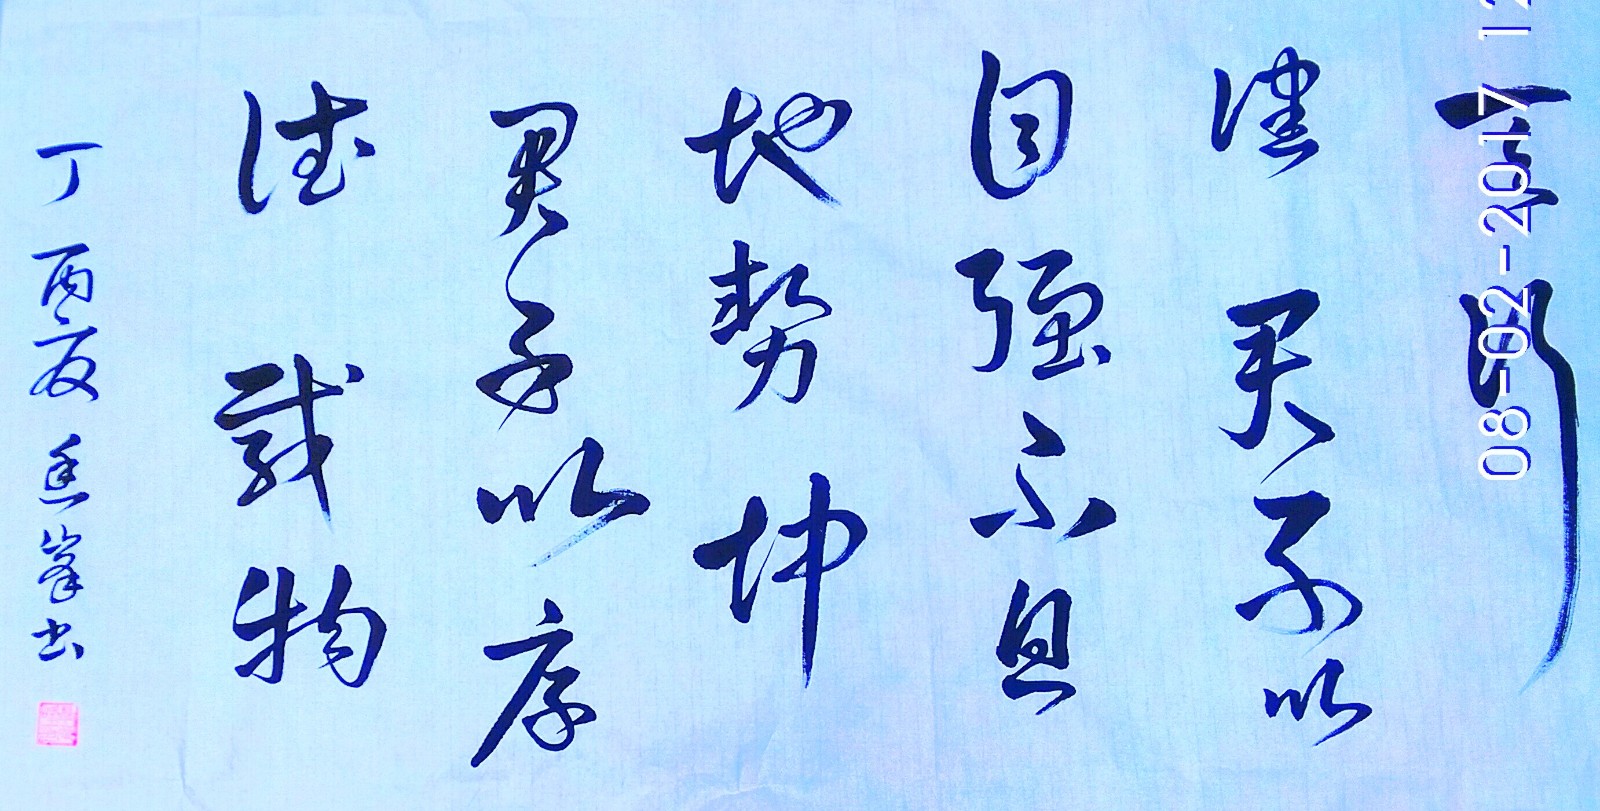 天行
健君子以
自强不息
地势坤
君子以厚
德载物
丁酉夏 峯书
08-02-2017 12